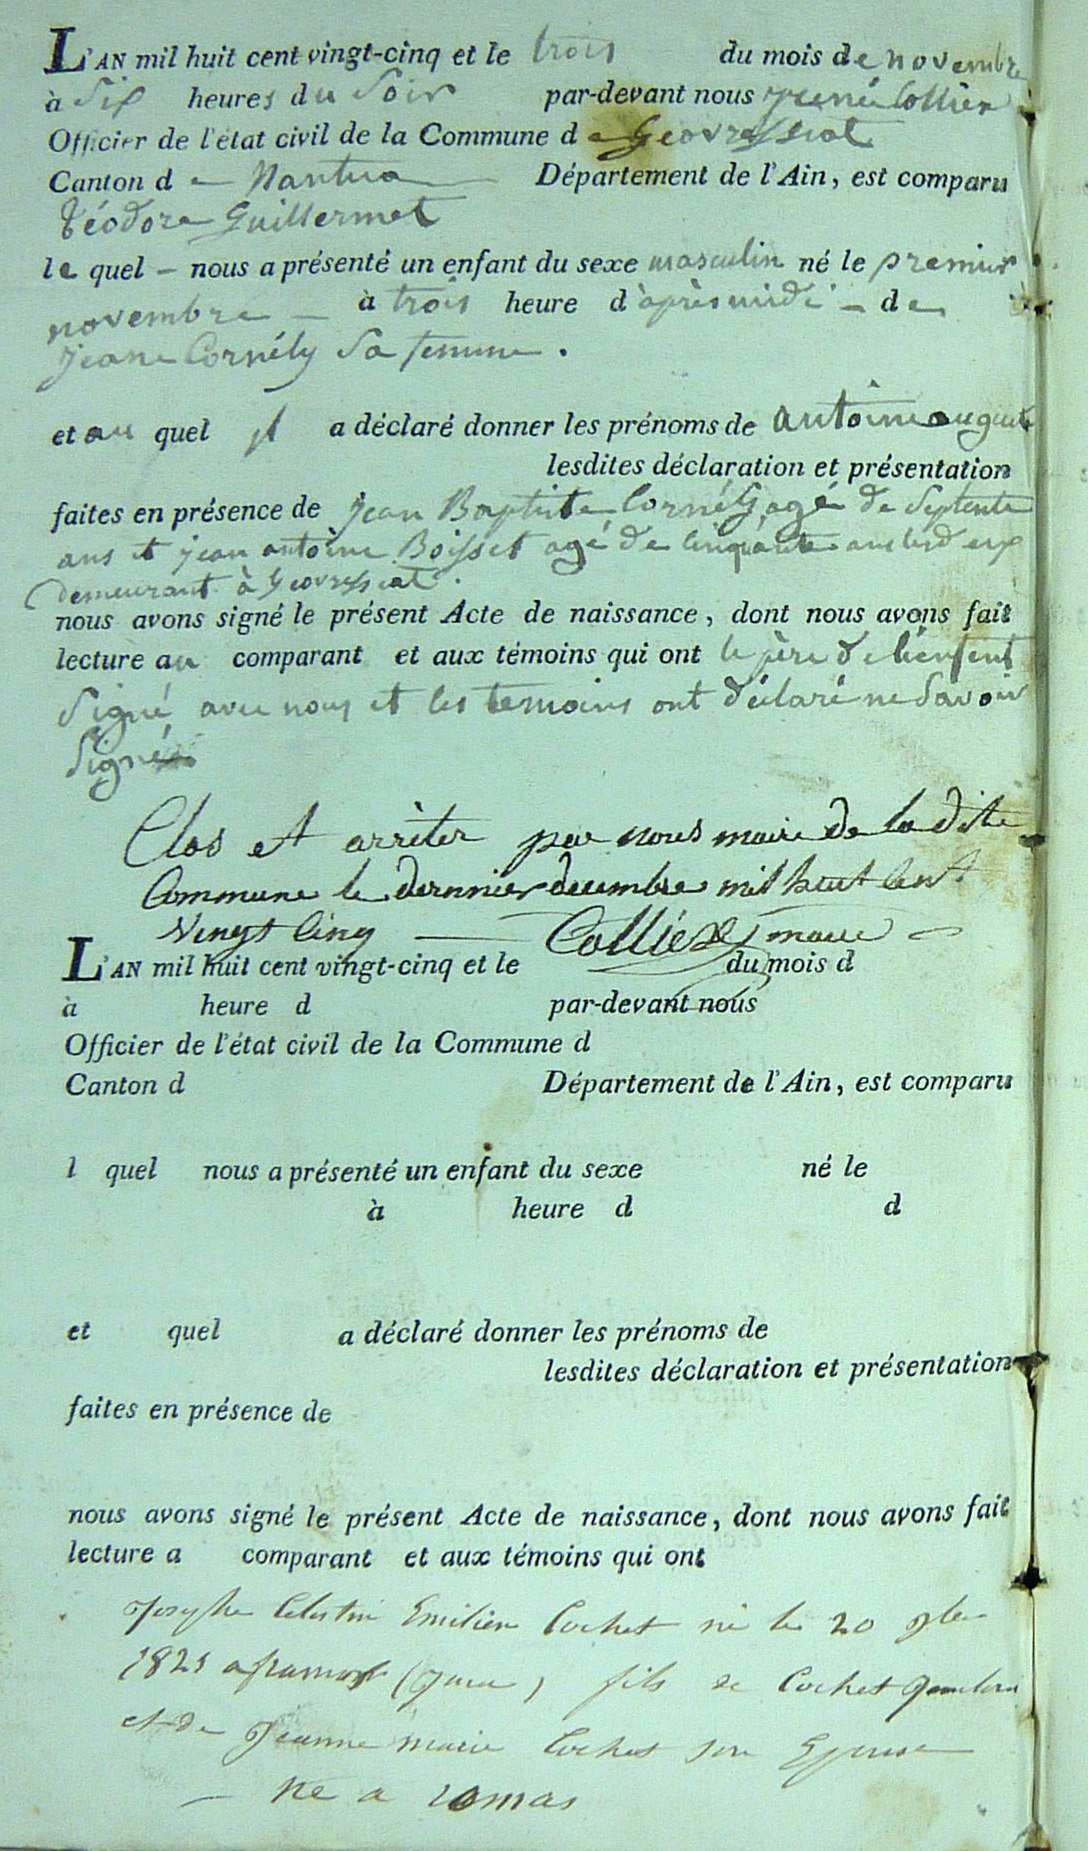 L'AN mil huit cent vingt-cinq et le trois du mois de novembre
à Six heures du Soir par-devant nous rené Collier
Officier de l'état civil de la Commune de Geovressiat
Canton de Nantua Département de l'Ain, est comparu
téodore Guillermet
le quel nous a présenté un enfant du sexe masculin né le premier
novembre à trois heure d'après midi de
jeane Cornély Sa femme.
et au quel il a déclaré donner les prénoms de antoine auguste
lesdites déclaration et présentation
faites en présence de jean Baptiste Cornély agé de Septente
ans et jean antoine Boisset agé de cinquante ans
demeurant à Geovressiat.
nous avons signé le présent Acte de naissance, dont nous avons fait
lecture au comparant et aux témoins qui ont le père de
Signé avec nous et les temoins ont déclaré ne Savoir
Signé
Clos et arrêter par nous maire de la dite
Commune le dernnier decembre mil huit cent
vingt cinq Colliex maire
L'AN mil huit cent vingt-cinq et le du mois d
à heure d par-devant nous
Officier de l'état civil de la Commune d
Canton d Département de l'Ain, est comparu
l quel nous a présenté un enfant du sexe né le
à heure d d
et quel a déclaré donner les prénoms de
lesdites déclaration et présentation
faites en présence de
nous avons signé le présent Acte de naissance, dont nous avons fait
lecture a comparant et aux témoins qui ont
Josephe Celestin Emilien Cochet né le 20
1825 (jura) fils de Cochet
et de Jeanne marie Cochet son Epouse
né a